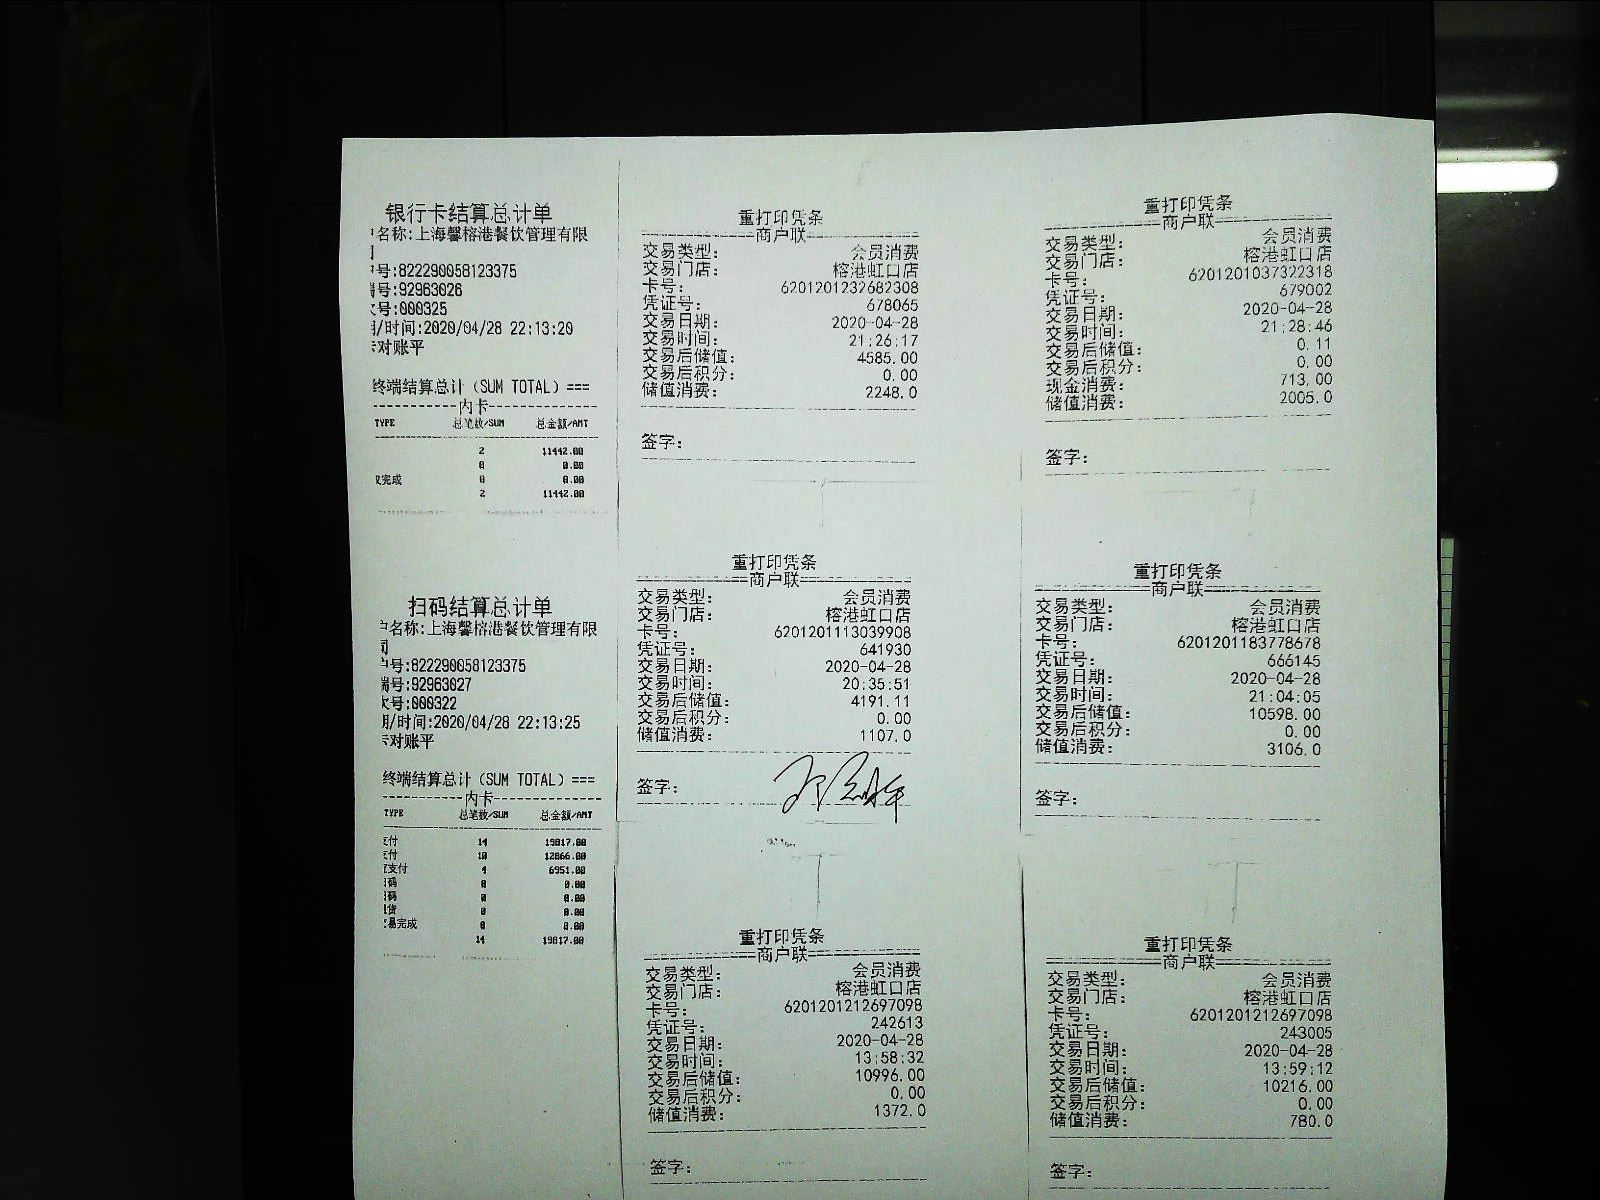 银行卡结算总计单
名称:上海馨榕港餐饮管理有限
号:822290058123375
号:92963026
号:000325
/时间:2020/04/28 22:13:20
对账平
终端结算总计（SUM TOTAL）===
内卡
TYPE 总笔数/SUM 总金额/AMT
2 11442.00
0 0.00
完成 0 0.00
2 11442.00
扫码结算总计单
名称:上海馨榕港餐饮管理有限
司
号:822290058123375
端号:92963027
号:000322
/时间:2020/04/28 22:13:25
对账平
终端结算总计（SUM TOTAL）===
内卡
TYPE 总笔数/SUM 总金额/AMT
付 14 19817.00
付 10 12866.00
支付 4 6951.00
码 0 0.00
码 0 0.00
货 0 0.00
易完成 0 0.00
14 19817.00
重打印凭条
商户联
交易类型: 会员消费
交易门店: 榕港虹口店
卡号: 6201201232682308
凭证号: 678065
交易日期: 2020-04-28
交易时间: 21:26:17
交易后储值: 4585.00
交易后积分: 0.00
储值消费: 2248.0
签字:
重打印凭条
商户联
交易类型: 会员消费
交易门店: 榕港虹口店
卡号: 6201201113039908
凭证号: 641930
交易日期: 2020-04-28
交易时间: 20:35:51
交易后储值: 4191.11
交易后积分: 0.00
储值消费: 1107.0
签字:
重打印凭条
商户联
交易类型: 会员消费
交易门店: 榕港虹口店
卡号: 6201201212697098
凭证号: 242613
交易日期: 2020-04-28
交易时间: 13:58:32
交易后储值: 10996.00
交易后积分: 0.00
储值消费: 1372.0
签字:
重打印凭条
商户联
交易类型: 会员消费
交易门店: 榕港虹口店
卡号: 6201201037322318
凭证号: 679002
交易日期: 2020-04-28
交易时间: 21:28:46
交易后储值: 0.11
交易后积分: 0.00
现金消费: 713.00
储值消费: 2005.0
签字:
重打印凭条
商户联
交易类型: 会员消费
交易门店: 榕港虹口店
卡号: 6201201183778678
凭证号: 666145
交易日期: 2020-04-28
交易时间: 21:04:05
交易后储值: 10598.00
交易后积分: 0.00
储值消费: 3106.0
签字:
重打印凭条
商户联
交易类型: 会员消费
交易门店: 榕港虹口店
卡号: 6201201212697098
凭证号: 243005
交易日期: 2020-04-28
交易时间: 13:59:12
交易后储值: 10216.00
交易后积分: 0.00
储值消费: 780.0
签字: